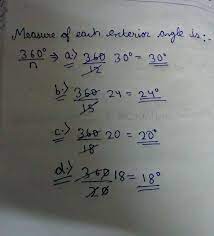 Measure of each exterior angle is:-
360°/n ⇒ a:) 360/12 30° = 30°
b:) 360/15 24 = 24°
c:) 360/18 20 = 20°
d:) 360/20 18 = 18°